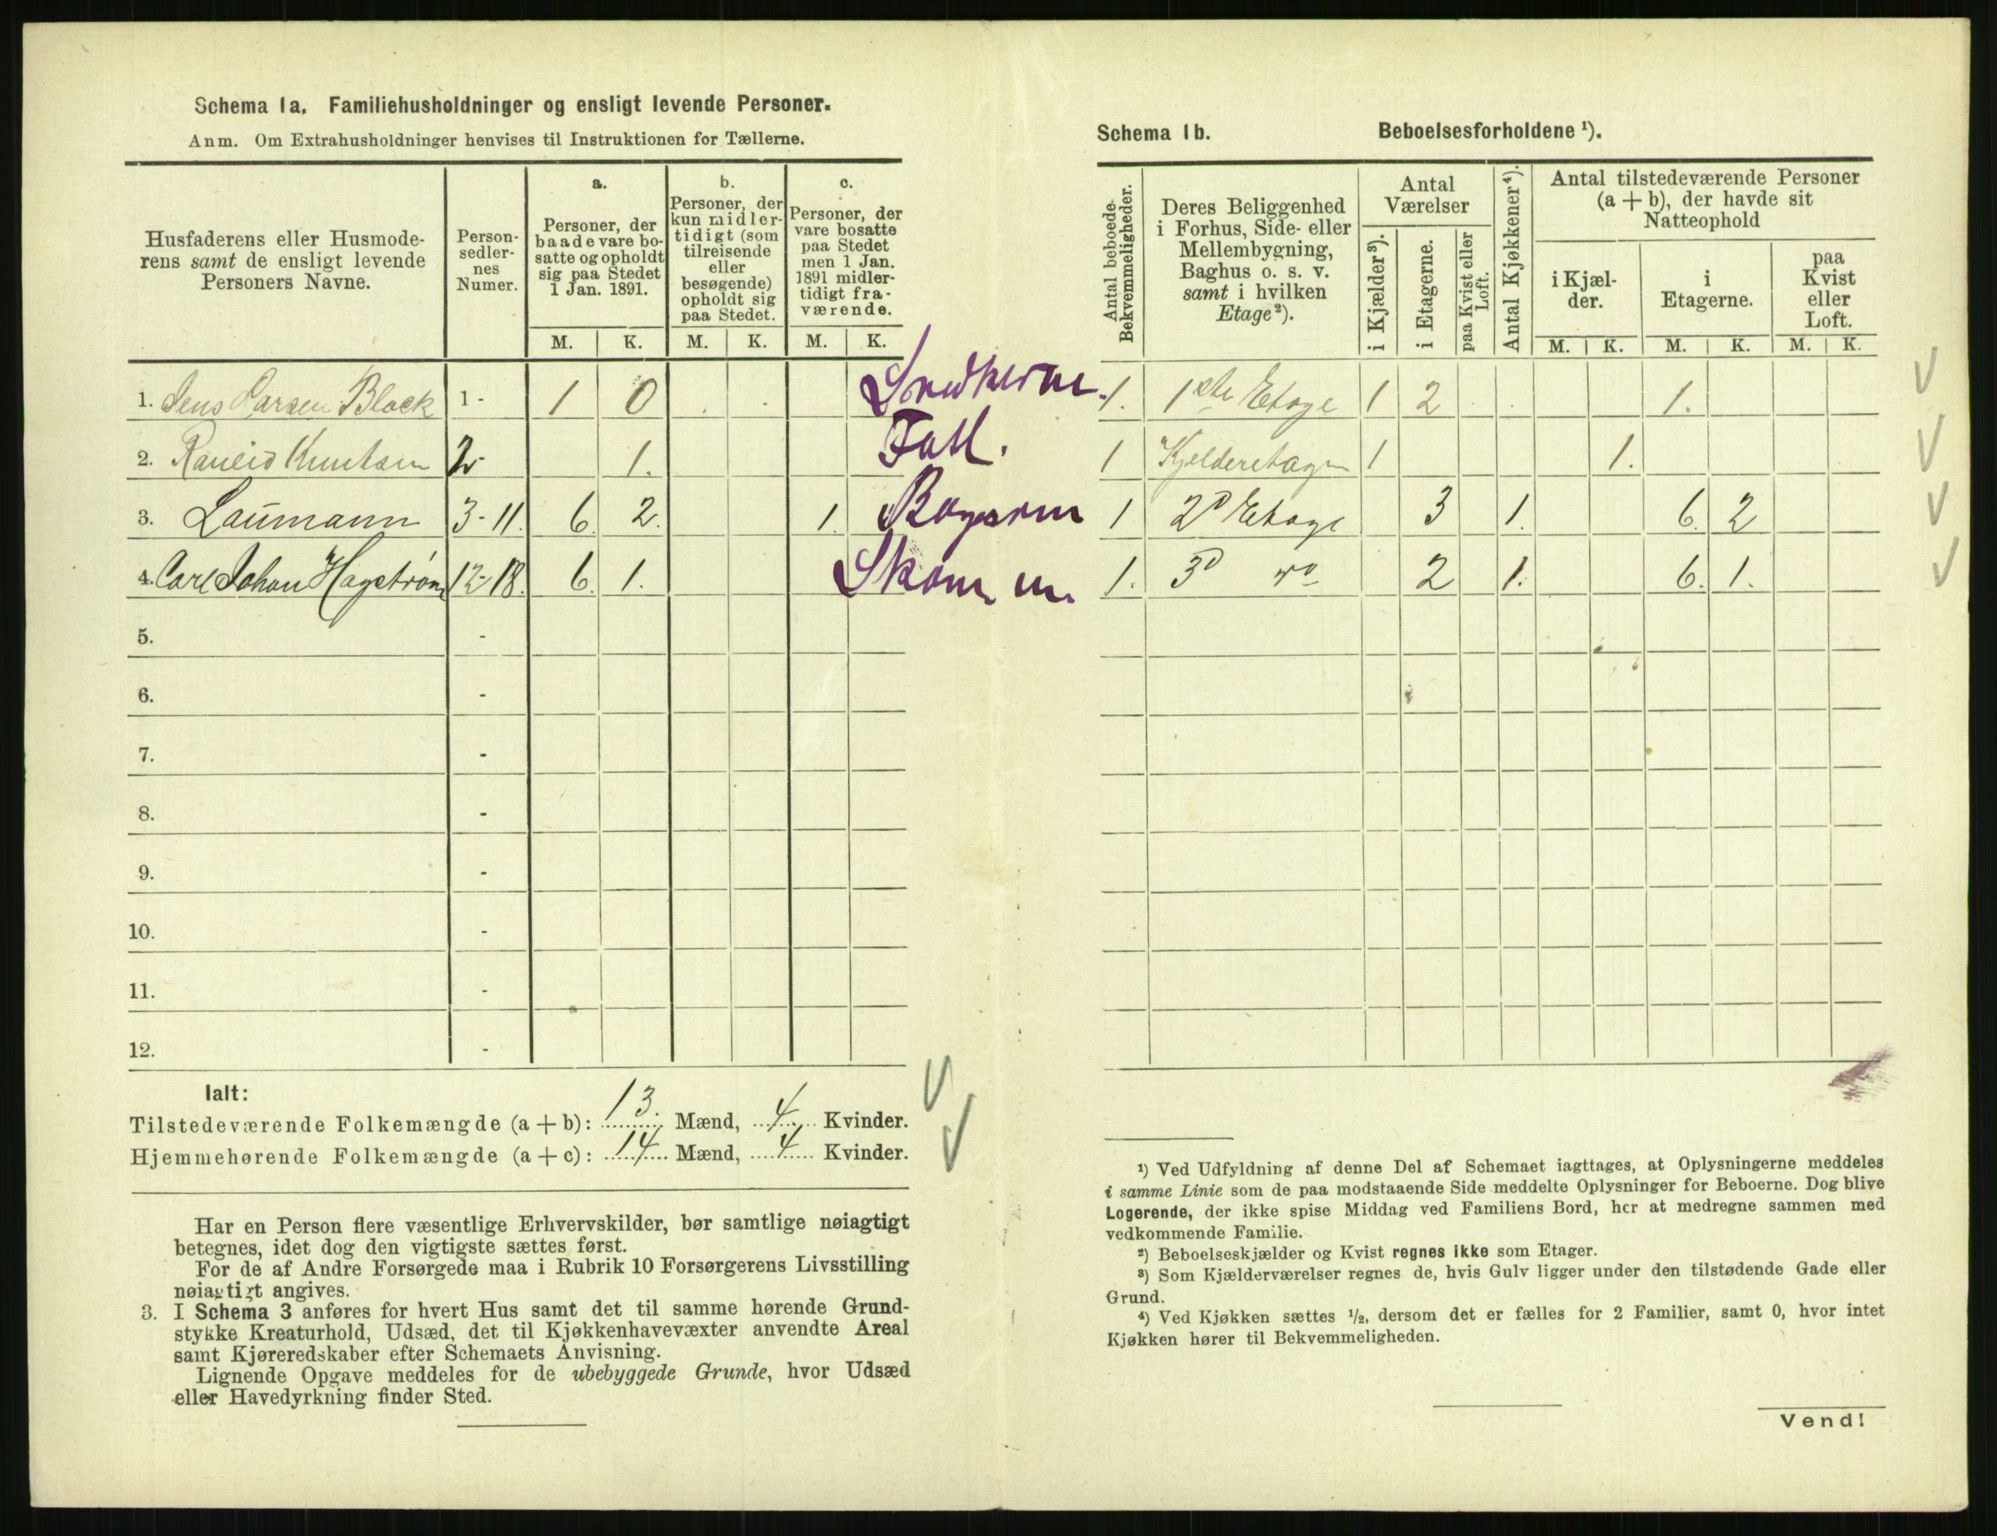 Schema 1a. Familiehusholdninger og ensligt levende Personer.
Anm. Om Extrahusholdninger henvises til Instruktionen for Tællerne.
Husfaderens eller Husmode-
rens samt de ensligt levende
Personers Navne.
Person-
sedler-
nes
Numer.
a.
Personer, der
baade vare bo-
satte og opholdt
sig paa Stedet
1 Jan. 1891.
b.
Personer, der
kun midler-
tidigt (som
tilreisende
eller
besøgende)
opholdt sig
paa Stedet.
c.
Personer, der
vare bosatte
paa Stedet
men 1 Jan.
1891 midler-
tidigt fra-
værende.
M. K. M. K. M. K.
1. Jens Larsen Block 1 - 1 0
2. Knutsen 2 - 1.
3. Laumann 3-11. 6. 2. 1.
4. Carl Johan Hagstrøm 12-18. 6. 1.
5. -
6. -
7. -
8. -
9. -
10. -
11. -
12. -
Ialt:
Tilstedeværende Folkemængde (a + b): 13. Mænd, 4 Kvinder.
Hjemmehørende Folkemængde (a + c): 14 Mænd, 4 Kvinder.
Har en Person flere væsentlige Erhvervskilder, bør samtlige nøiagtigt
betegnes, idet dog den vigtigste sættes først.
For de af Andre Forsørgede maa i Rubrik 10 Forsørgerens Livsstilling
nøiagtigt angives.
3. I Schema 3 anføres for hvert Hus samt det til samme hørende Grund-
stykke Kreaturhold, Udsæd, det til Kjøkkenhavevæxter anvendte Areal
samt Kjøreredskaber efter Schemaets Anvisning.
Lignende Opgave meddeles for de ubebyggede Grunde, hvor Udsæd
eller Havedyrkning finder Sted.
Schema 1b. Beboelsesforholdene ¹).
Antal beboede
Bekvemmeligheder.
Deres Beliggenhed
i Forhus, Side- eller
Mellembygning,
Baghus o. s. v.
samt i hvilken
Etage²).
Antal
Værelser
i Kjælder³).
i Etagerne.
paa Kvist eller
Loft.
Antal Kjøkkener⁴).
Antal tilstedeværende Personer
(a + b), der havde sit
Natteophold
i Kjæl-
der.
i
Etagerne.
paa
Kvist
eller
Loft.
M. K. M. K. M. K.
1. 1ste Etage 1 2 1.
Fatt.
1 Kjelderetagen 1 1.
1 2d Etage 3 1. 6. 2
1. 3d do 2 1. 6. 1.
¹) Ved Udfyldning af denne Del af Schemaet iagttages, at Oplysningerne meddeles
i samme Linie som de paa modstaaende Side meddelte Oplysninger for Beboerne. Dog blive
Logerende, der ikke spise Middag ved Familiens Bord, her at medregne sammen med
vedkommende Familie.
²) Beboelseskjælder og Kvist regnes ikke som Etager.
³) Som Kjælderværelser regnes de, hvis Gulv ligger under den tilstødende Gade eller
Grund.
⁴) Ved Kjøkken sættes ½, dersom det er fælles for 2 Familier, samt 0, hvor intet
Kjøkken hører til Bekvemmeligheden.
Vend!